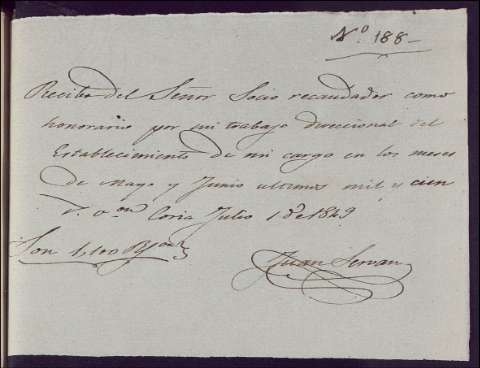 Nº. 188-
Recibo del Señor Socio recaudador como
honorario por mi trabajo direccional del
Establecimiento de mi cargo en los meses
de Mayo y Junio ultimos mil y cien
Coria Julio 1º de 1849
Son 1,100
Juan Servan